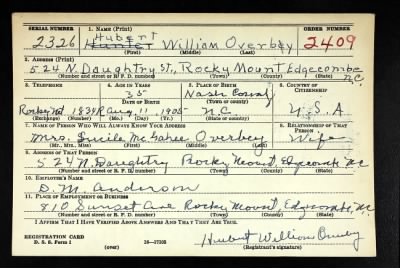 SERIAL NUMBER 1. NAME (Print) ORDER NUMBER
Hubert
2326 Hunter William Overbey 2409
(First) (Middle) (Last)
2. ADDRESS (Print)
524 N. Daughtry St., Rocky Mount Edgecombe N.C.
(Number and street or R. F. D. number) (Town) (County) (State)
3. TELEPHONE 4. AGE IN YEARS 5. PLACE OF BIRTH 6. COUNTRY OF CITIZENSHIP
35 Nash County
DATE OF BIRTH
Rocky Mt 1834R Aug 11 1905 N.C. U.S.A
(Exchange) (Number) (Mo.) (Day) (Yr.) (State or country)
7. NAME OF PERSON WHO WILL ALWAYS KNOW YOUR ADDRESS 8. RELATIONSHIP OF THAT PERSON
Mrs. Lucile Overbey Wife
(Mr., Mrs., Miss) (First) (Middle) (Last)
9. ADDRESS OF THAT PERSON
524 N. Daughtry Rocky Mount, Edgecombe N.C.
(Number and street or R. F. D. number) (Town) (County) (State)
10. EMPLOYER'S NAME
D. M. Anderson
11. PLACE OF EMPLOYMENT OR BUSINESS
810 Sunset Ave Rocky Mount, Edgecombe, N.C.
(Number and street or R. F. D. number) (Town) (County) (State)
I AFFIRM THAT I HAVE VERIFIED ABOVE ANSWERS AND THAT THEY ARE TRUE.
REGISTRATION CARD
D. S. S. Form 1 (over) 16—17105 Hubert William
(Registrant's signature)